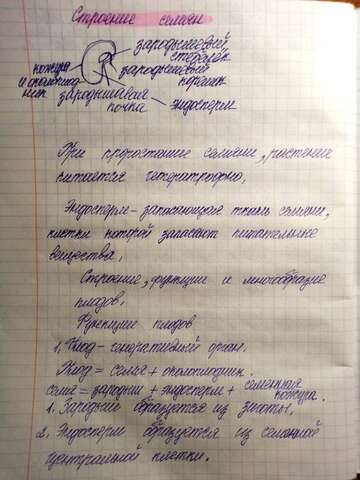 Строение семян
зародышевый
стебелёк
кожура
и околоплод
ник
зародышевый
корешок
зародышевая
почка
эндосперм
При прорастание семени, растение
питается гетеротрофно,
Эндосперм - запасающая ткань семени,
клетки которой запасают питательные
вещества,
Строение, функции и многообразие
плодов,
Функции плодов
1, Плод - генеративный орган.
Плод = семя + околоплодник.
семя = зародыш + эндосперм + семенная
кожура.
1. Зародыш образуется из зиготы,
2. Эндосперм образуется из семенной
центральной клетки.